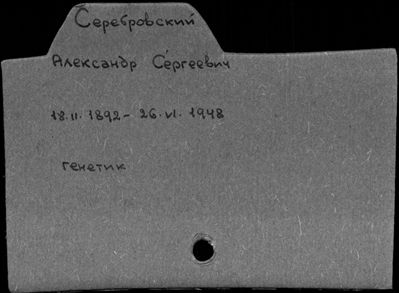 Серебровский
Александр Сергеевич
18.II.1892 - 26.VI.1948
генетик